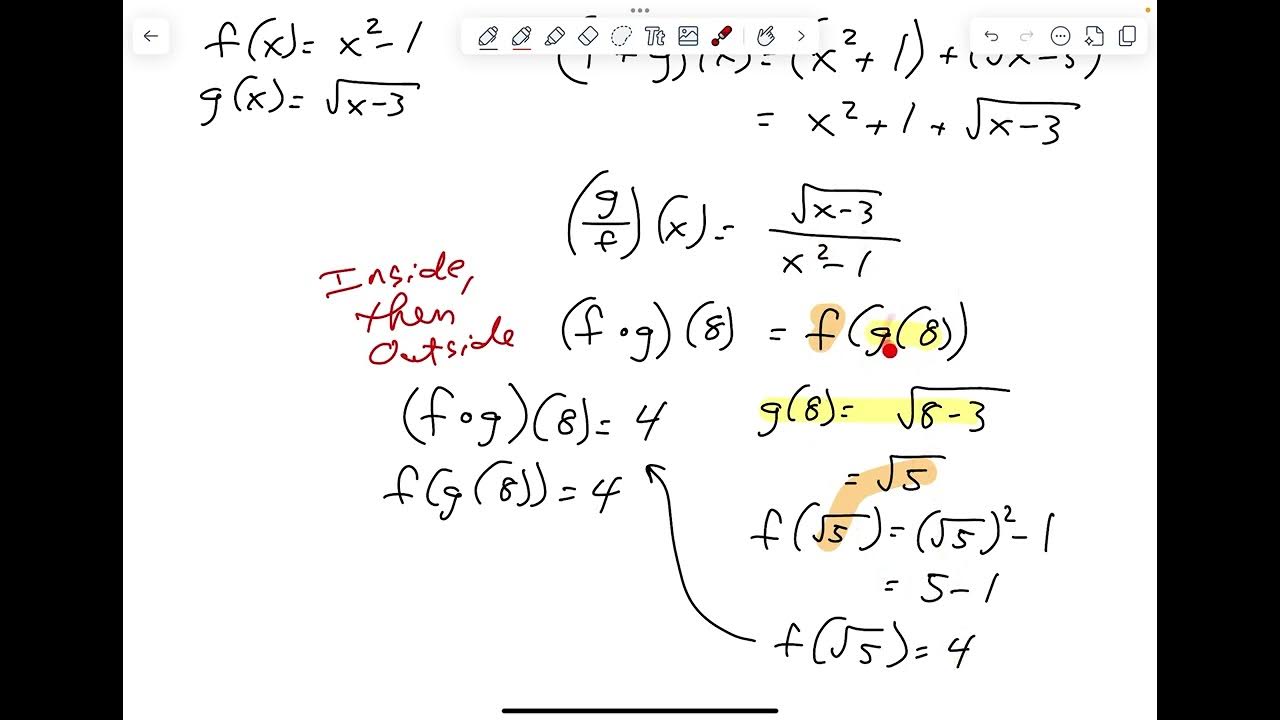 f(x) = x² - 1
g(x) = √(x-3)
(f + g)(x) = (x² + 1) + (√x-3)
= x² + 1 + √(x-3)
(g/f)(x) = √(x-3) / (x² - 1)
Inside,
then
outside
(f ∘ g)(8) = f(g(8))
(f ∘ g)(8) = 4
f(g(8)) = 4
g(8) = √(8-3)
= √5
f(√5) = (√5)² - 1
= 5 - 1
f(√5) = 4
Tt